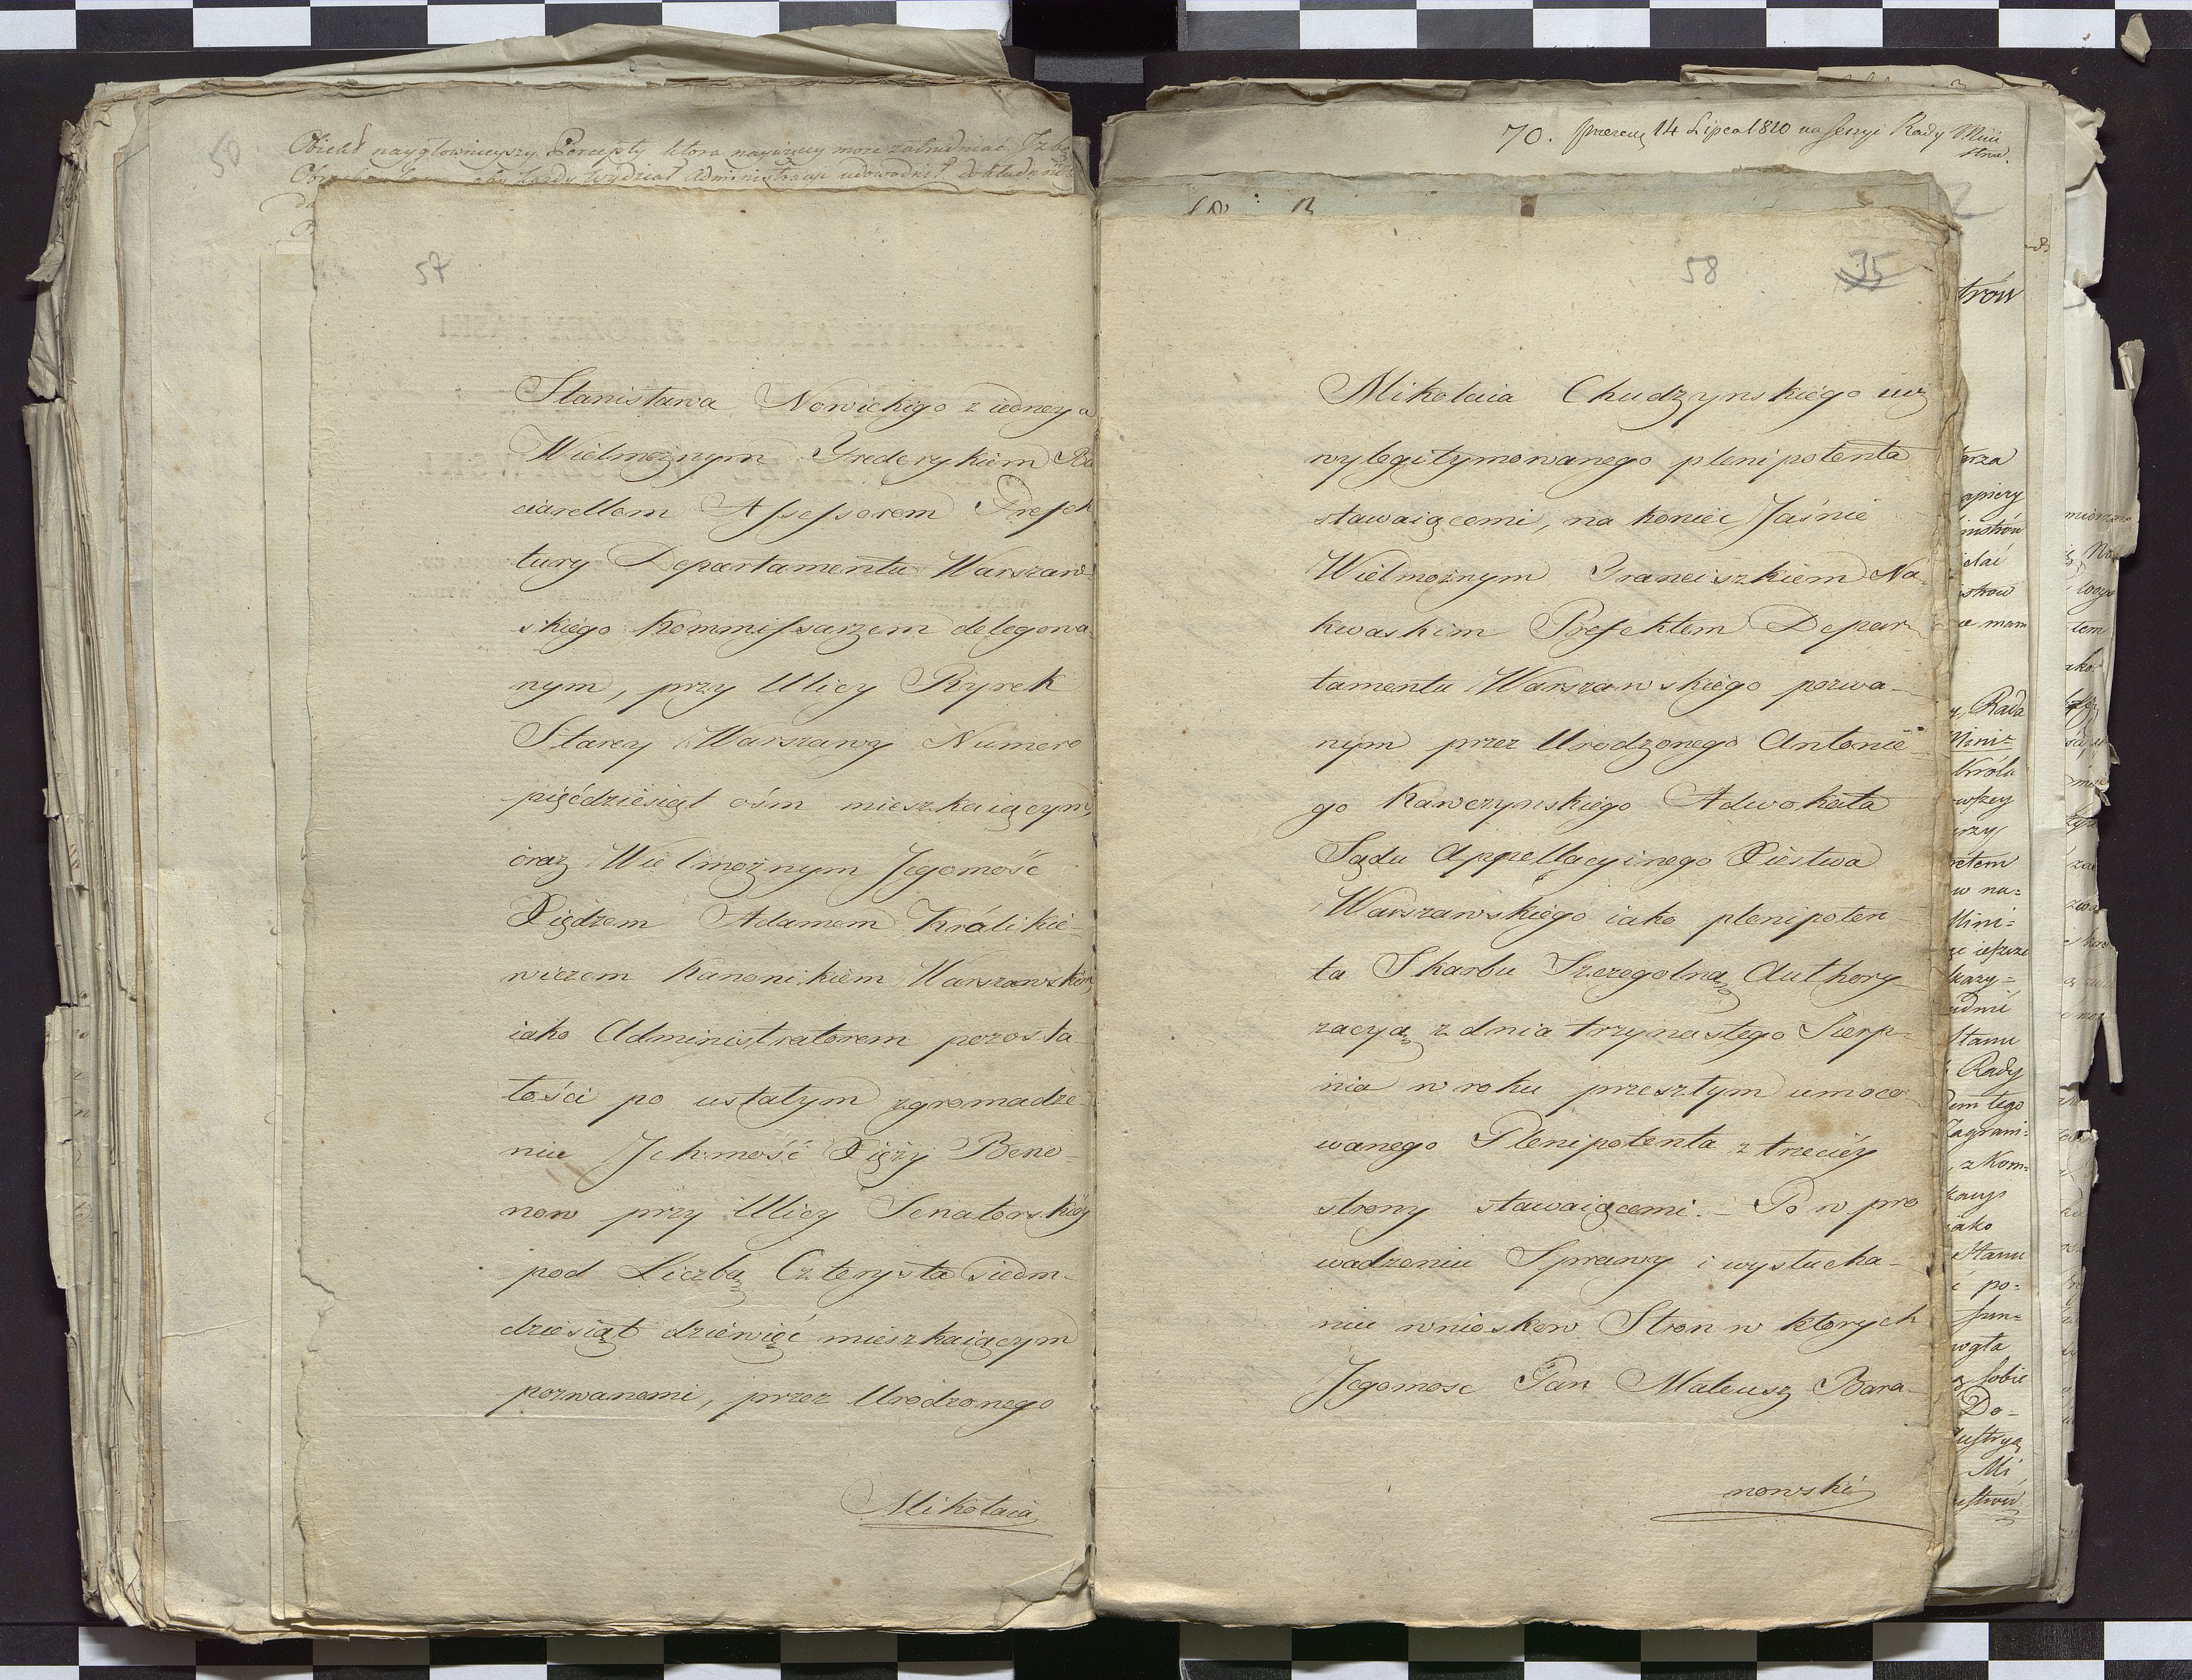 50
Obiekt naygłownieyszy Percepty ktora nayiuzey moze zatrudniać Jzbę
każdy Wydział Administracyi udowodnił dokładność
57
Stanisława Nowickigo z iedney a
Wielmożnym Frederykiem Ba
ciarellom Assessorem Prefek
tury Departamentu Warszaw-
skiégo Kommissarzem delegowa-
nym, przy Ulicy Rynek
Starey Warszawy Numero
pięćdziesiąt ośm mieszkaiącym,
oraz Wielmożnym Jegomość
Xiędzem Adamem Królikie-
wiczem Kanonikiem Warszawskim,
iako Administratorem pozosta-
łości po ustałym zgromadze-
niu Jchmość Xięży Beno-
now przy Ulicy Senatorskiéy
pod Liczbą Czterysta siedm-
dziesiąt dziewięć mieszkaiącym
pozwanemi, przez Urodzonego
Mikołaia
70. prezent 14 Lipca 1810 na Sessyi Rady Mini
strow.
58 35
Mikołaia Chudzynskiégo iuż
wylegitymowanego plenipotenta
stawaiącemi, na koniec Jaśnie
Wielmożnym Franciszkiem Na-
kwaskim Prefektem Depar-
tamentu Warszawskiégo pozwa-
nym przez Urodzonego Antonie-
go Kawczynskiégo Adwokata
Sądu Appellacyinego Xięstwa
Warszawskiégo iako plenipoten-
ta Skarbu Szczegolną Authory-
zacyą z dnia trzynastego Sierp-
nia w roku przeszłym umoco-
wanego Plenipotenta z trzeciéy
strony stawaiącemi. – Po w pro
wadzeniu Sprawy i wysłucha-
niu wnioskow Stron w ktorych
Jegomosc Pan Mateusz Bara-
nowski